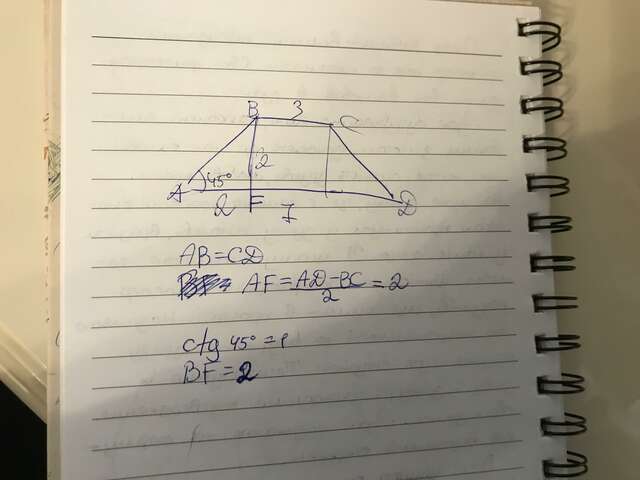 B 3 C
2
A 45°
2 F 7 D
AB=CD
AF=AD-BC/2=2
ctg 45°=1
BF=2